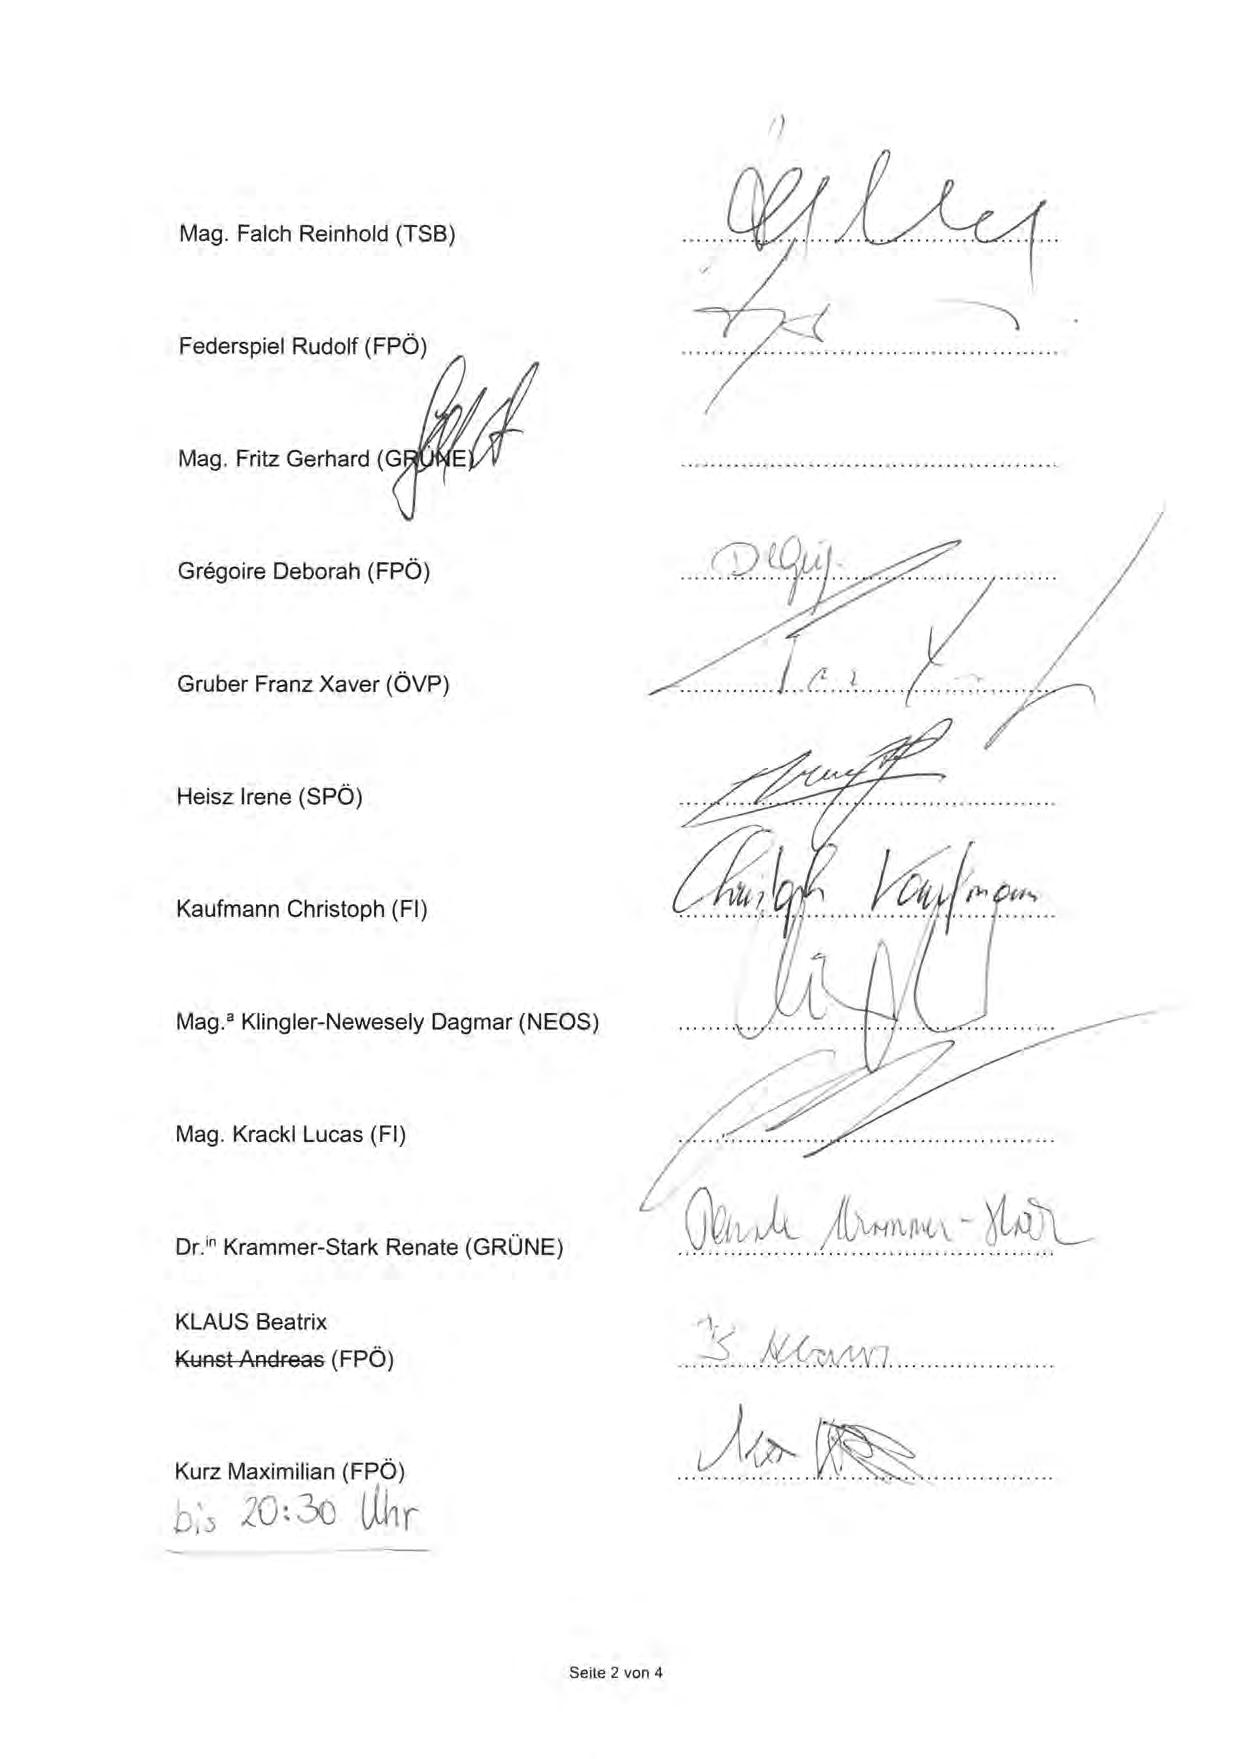 Mag. Falch Reinhold (TSB)
Federspiel Rudolf (FPÖ)
Mag. Fritz Gerhard (GRÜNE)
Grégoire Deborah (FPÖ)
Gruber Franz Xaver (ÖVP)
Heisz Irene (SPÖ)
Kaufmann Christoph (FI) Christoph Kaufmann
Mag.ª Klingler-Newesely Dagmar (NEOS)
Mag. Krackl Lucas (FI)
Dr.ⁱⁿ Krammer-Stark Renate (GRÜNE) Renate Krammer-Stark
KLAUS Beatrix
Kunst Andreas (FPÖ) B Klaus
Kurz Maximilian (FPÖ)
bis 20:30 Uhr
Seite 2 von 4